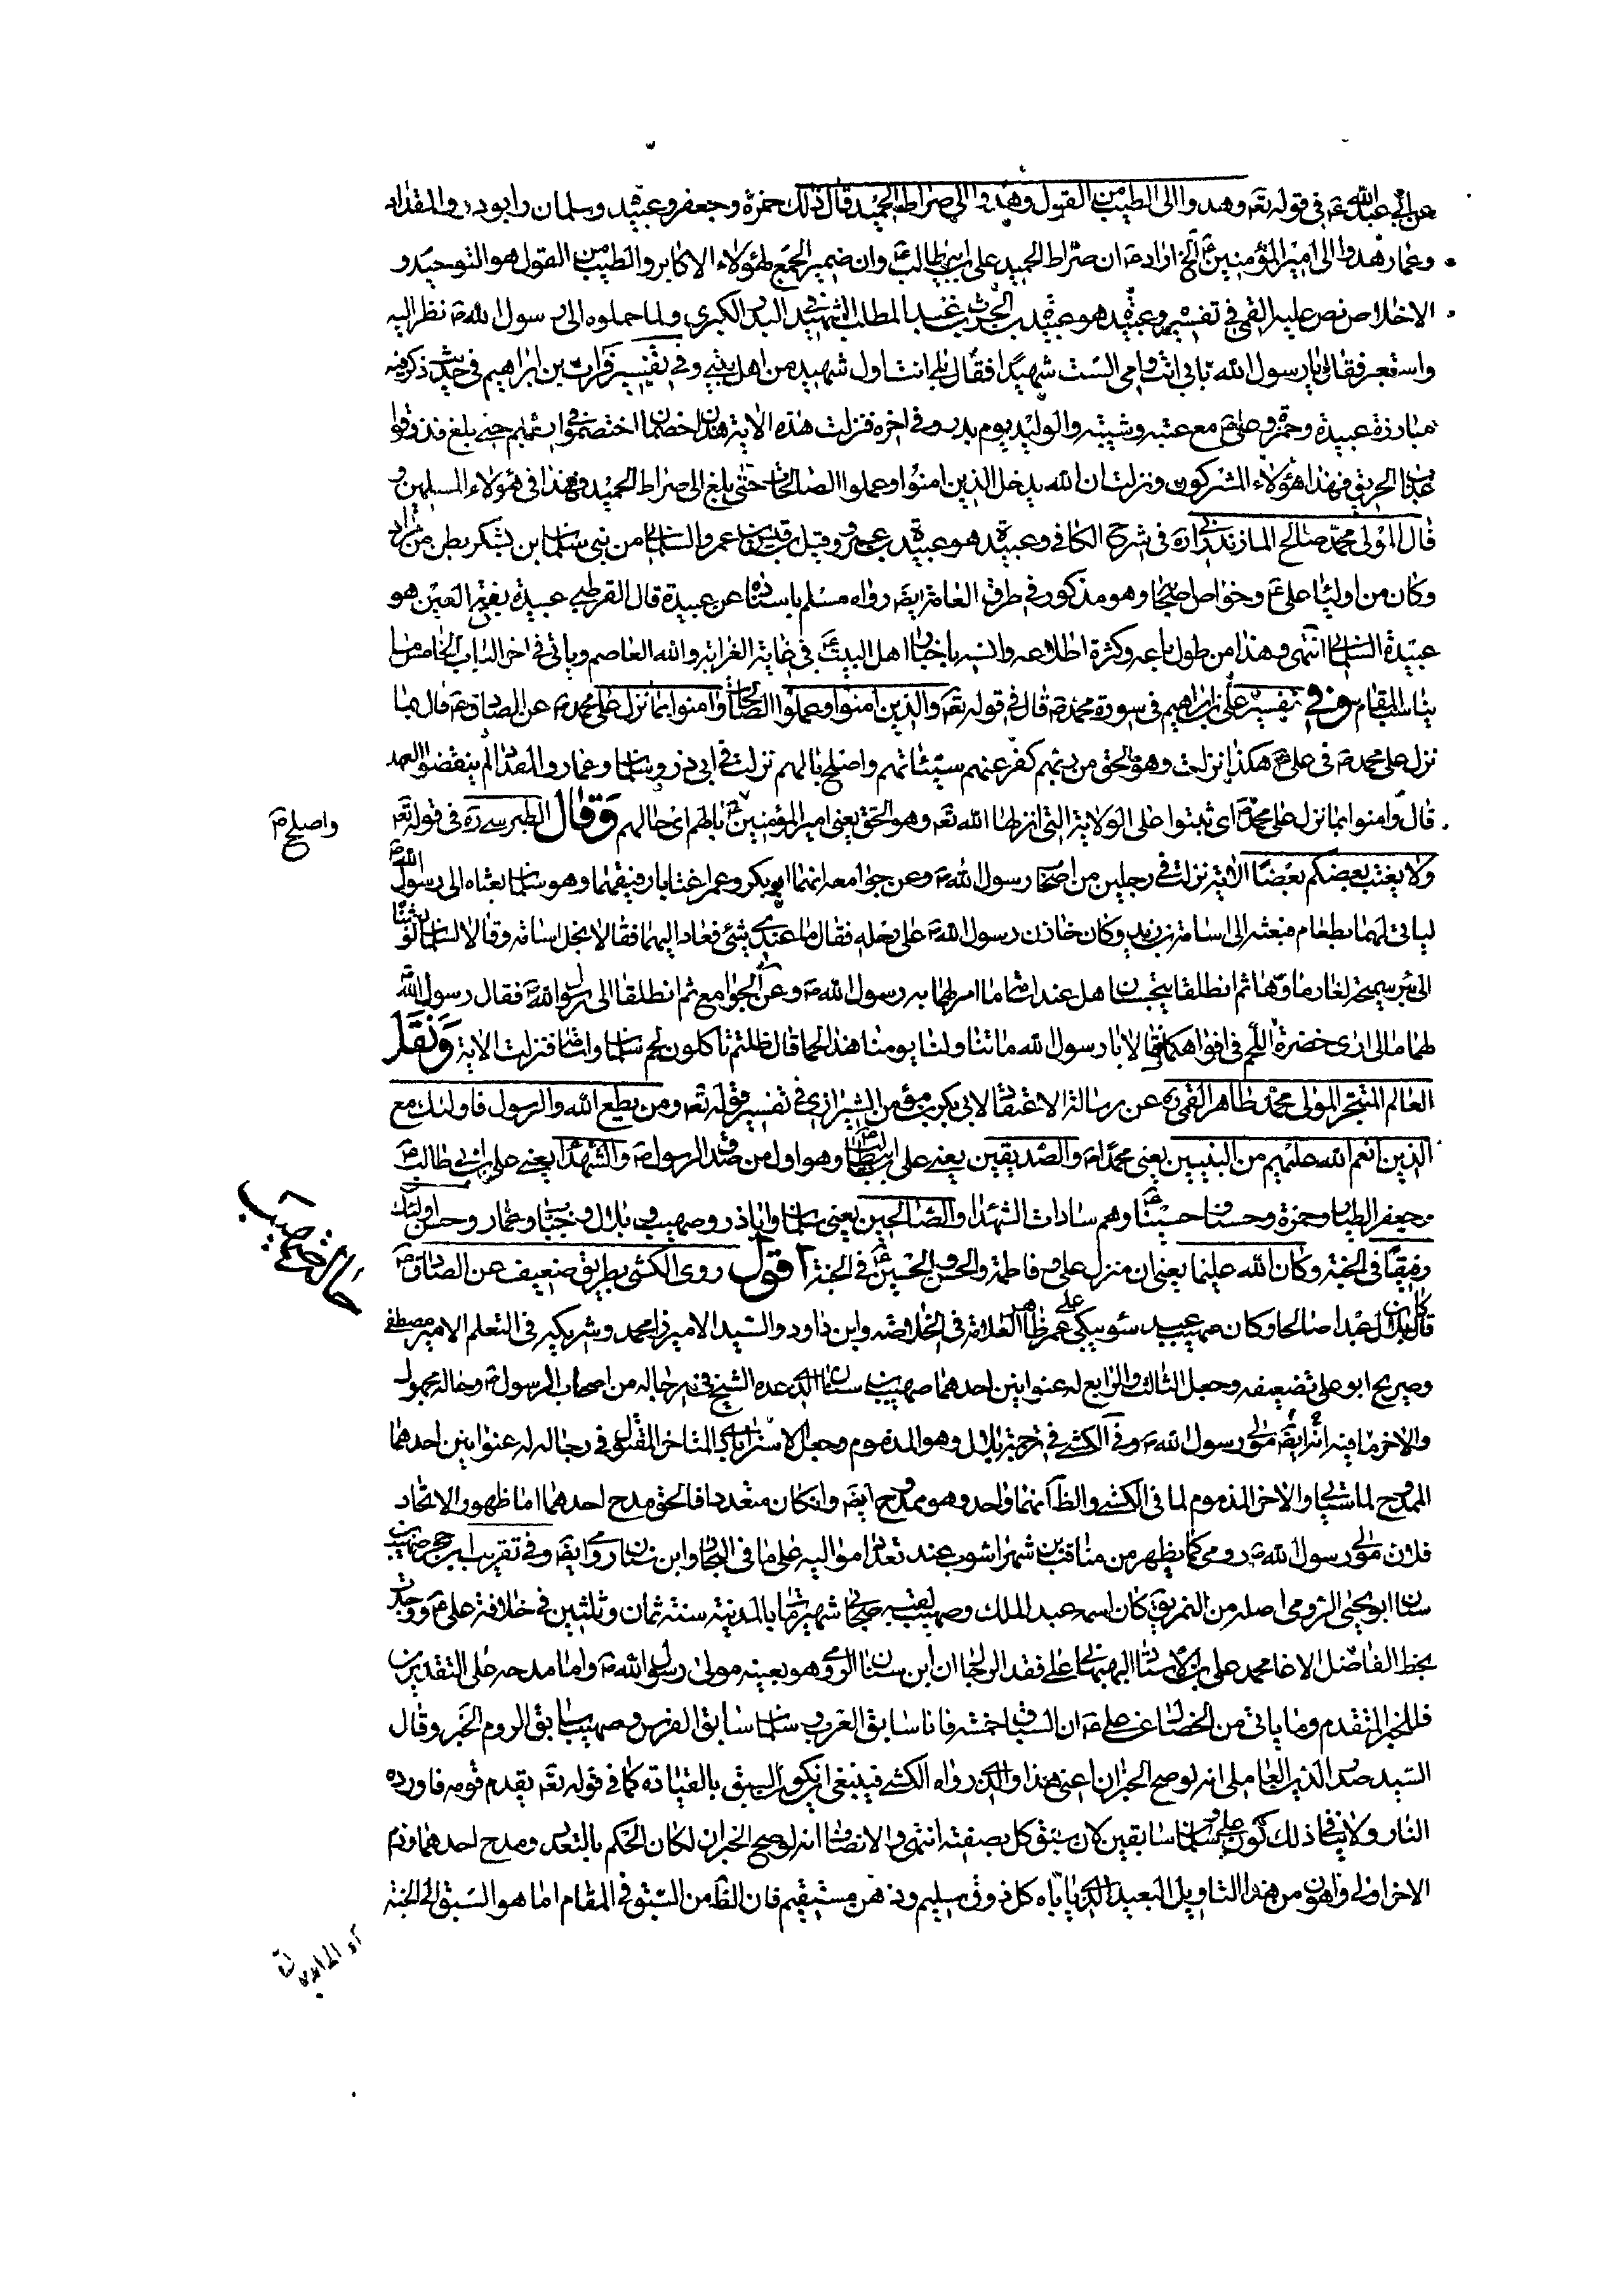 عن ابي عبد الله ع في قوله تعه وهدوا الى الطيب من القول وهدوا الى صراط الحميد قال ذلك حمزة وجعفر وعبيدة وسلمان وابوذر والمقداد
وعمار هدوا الى امير المؤمنين ع الخ اراد ص ان صراط الحميد علي بن ابي طالب ع وان ضمير الجمع لهؤلاء الاكابر والطيب من القول هو التوحيد و
الاخلاص نص عليه القمي في تفسيره وعبيدة هو عبيدة بن الحرث بن عبد المطلب الشهيد في البدر الكبرى ولما حملوه الى رسول الله ص نظر اليه
واستعبر فقال يا رسول الله بابي انت وامي الست شهيدا فقال بلى انت اول شهيد من اهل بيتي وفي تفسير فرات بن ابراهيم في حديث ذكر فيه
مبارزة عبيدة وحمزة وعلي ع مع عتبه وشيبه والوليد يوم بدر وفي اخره فنزلت هذه الاية هذان خصمان اختصموا في ربهم حتى بلغ فذوقوا
عذاب الحريق فهذا هؤلاء المشركون ونزلت ان الله يدخل الذين امنوا وعملوا الصالحات حتى بلغ الى صراط الحميد فهذا في هؤلاء المسلمين و
قال المولى محمد صالح المازندراني ره في شرح الكافي وعبيدة هو عبيدة بن عمرو وقيل بن قيس بن عمرو السلماني من بني سلمان بن يشكر بطن من مراد
وكان من اولياء علي ع وخواص اصحابه وهو مذكور في طرق العامة ايضه رواه مسلم باسناده عن عبيدة قال القرطبي عبيدة بفتح العين هو
عبيدة السلماني انتهى وهذا من طول باعه وكثرة اطلاعه وانسه باخبار اهل البيت ع في غاية الغرابة والله العاصم وياتي في اخر الباب الخامس ما
يناسب المقام وفي تفسير علي بن ابراهيم في سورة محمد ص قال في قوله تعه والذين امنوا وعملوا الصالحات وامنوا بما نزل على محمد ص عن الصادق ع قال بما
نزل على محمد ص في علي ع هكذا نزلت وهو الحق من ربهم كفر عنهم سيئاتهم واصلح بالهم نزلت في ابي ذر وسلمان وعمار والمقداد لم ينقضوا العهد
قال وامنوا بما نزل على محمد ص اى ثبتوا على الولاية التي انزلها الله تعه وهو الحق يعني امير المؤمنين ع بالهم اى حالهم وقال الطبرسي ره في قوله تعه
واصلح ص
ولا يغتب بعضكم بعضا الاية نزلت في رجلين من اصحاب رسول الله ص وعن جوامعه انهما ابو بكر وعمر اغتابا رفيقهما وهو سلمان بعثاه الى رسول الله ص
لياتي لهما بطعام فبعثه الى اسامة بن زيد وكان خازن رسول الله ص على رحله فقال ما عندي شئ فعاد اليهما فقالا بخل اسامة وقالا لسلمان لو بعثناه
الى بئر سميحة لغار ماؤها ثم انطلقا يتجسسان هل عند اسامة ما امر لهما به رسول الله ص وعن الجوامع ثم انطلقا الى رسول الله ص فقال رسول الله ص
لهما مالي ارى خضرة اللحم في افواهكما فقالا يا رسول الله ما تناولنا يومنا هذا لحما قال ظللتم تاكلون لحم سلمان واسامة فنزلت الاية ونقل
العالم المتبحر المولى محمد طاهر القمي ره عن رسالة الاعتقاد لابي بكر بن مؤمن الشيرازي في تفسير قوله تعه ومن يطع الله والرسول فاولئك مع
الذين انعم الله عليهم من النبيين يعني محمدا ص والصديقين يعني علي بن ابي طالب ع وهو اول من صدق الرسول ص والشهداء يعني علي بن ابي طالب ع
جعفر الطيار وحمزة وحسنا وحسينا ع وهم سادات الشهداء والصالحين يعني سلمان واباذر وصهيب وبلال وخبابا وعمار وحسن اولئك
رفيقا في الجنة وكان الله عليما يعني ان منزل علي وفاطمة والحسن والحسين ع في الجنة اقول روى الكشي بطريق ضعيف عن الصادق ع
حال صهيب
قال كان بلال عبدا صالحا وكان صهيب عبد سوء يبكي على عمر ظاهر العلامة في الخلاصه وابن داود والسيد الاميرزا محمد وشريكه في التعلم الامير مصطفى
وصريح ابو علي تضعيفه وجعل الثالث والرابع له عنوانين احدهما صهيب بن سنان الذي عده الشيخ في رجاله من اصحاب الرسول ص وحاله مجهول
والاخر ما فيه انه ايضه مولى رسول الله ص وفي الكشي في ترجمة بلال وهو المذموم وجعل الاسترابادي المتاخر القتيل في رجاله له عنوانين احدهما
الممدوح لما سياتي والاخر المذموم لما في الكشي والظ انهما واحد وهو ممدوح ايضه وان كان متعددا فالحق مدح احدهما اما ظهور الاتحاد
فلان مولى رسول الله ص رومي كما يظهر من مناقب ابن شهراشوب عند تعداد مواليه على ما في البحار وابن سنان رومي ايضه وفي تقريب ابن حجر صهيب بن
سنان ابو يحيى الرومي اصله من النمر يق كان اسمه عبد الملك وصهيب لقبه صحابي شهير مات بالمدينة سنة ثمان وثلثين في خلافة علي ع ووجدت
بخط الفاضل الاغا محمد علي بن الاستاد البهبهاني على نقد الرجال ان ابن سنان الرومي وهو بعينه مولى رسول الله ص واما مدحه على التقديرين
فللخبر المتقدم وما ياتي من الخصال عن علي ع ان السباق خمسه فانا سابق العرب وسلمان سابق الفرس وصهيب سابق الروم الخبر وقال
السيد صدر الدين العاملي انه لو صح الخبران اعني هذا والذي رواه الكشي فينبغي ان يكون السبق بالقيادة كما في قوله تعه يقدم قومه فاوردهم
النار ولا ينافي ذلك كون علي ع وسلمان سابقين لان سبق كل بصفته انتهى والانصاف انه لو صح الخبران لكان الحكم بالتعدد ومدح احدهما وذم
الاخر اولى واهون من هذا التاويل البعيد الذي ياباه كل ذوق سليم وذهن مستقيم فان الظ من السبق في المقام اما هو السبق الى الجنة